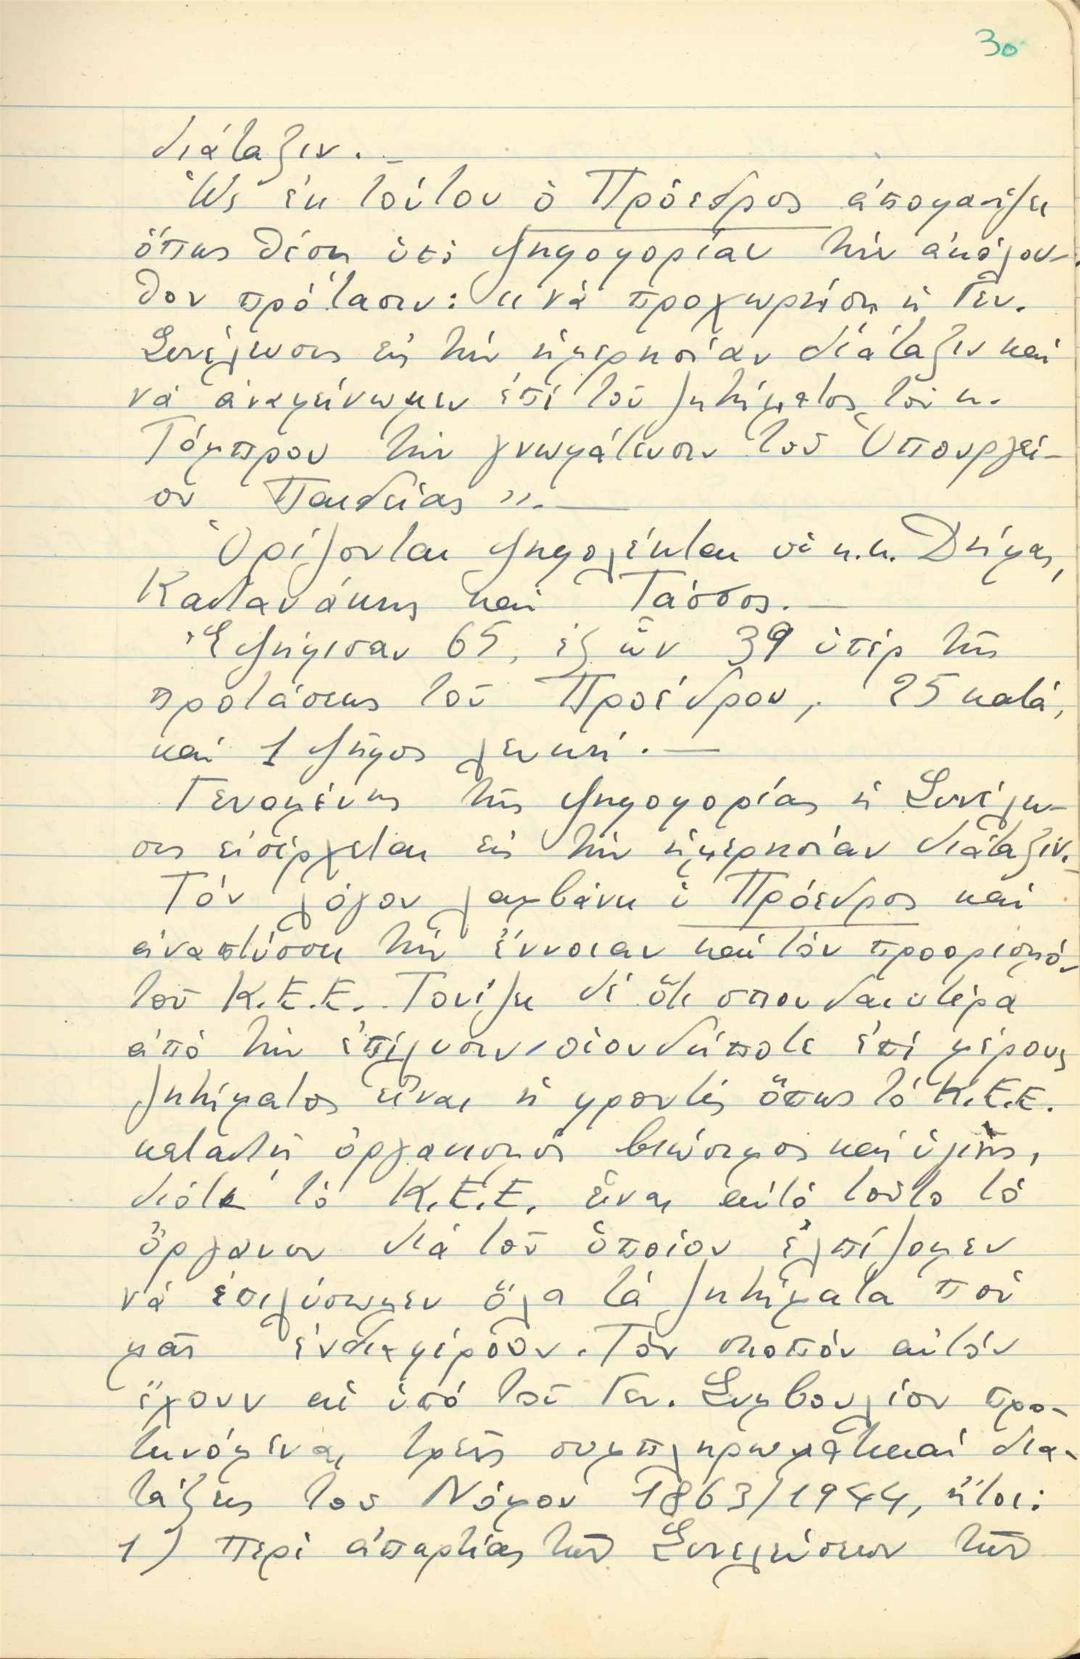 30
διάταξιν.—
Ὡς ἐκ τούτου ὁ Πρόεδρος ἀποφασίζει
ὅπως θέση ὑπό ψηφοφορίαν τήν ἀκόλου-
θον πρότασιν: "νά προχωρήση ἡ Γεν.
Συνέλευσις εἰς τήν ἡμερησίαν διάταξιν καί
νά ἀναμείνωμεν ἐπί τοῦ ζητήματος τοῦ κ.
Τόμπρου τήν γνωμάτευσιν τοῦ Ὑπουργεί-
ου Παιδείας".—
Ὁρίζονται ψηφολέκται οἱ κ.κ. Δήμας,
Καστανάκης καί Τάσσος.—
Ἐψήφισαν 65, ἐξ ὧν 39 ὑπέρ τῆς
προτάσεως τοῦ Προέδρου, 25 κατά,
καί 1 ψῆφος λευκή.—
Γενομένης τῆς ψηφοφορίας ἡ Συνέλευ-
σις εἰσέρχεται εἰς τήν ἡμερησίαν διάταξιν.
Τόν λόγον λαμβάνει ὁ Πρόεδρος καί
ἀναπτύσσει τήν ἔννοιαν καί τόν προορισμό
τοῦ Κ.Ε.Ε. Τονίζει δέ ὅτι σπουδαιοτέρα
ἀπό τήν ἐπίλυσιν οἱουδήποτε ἐπί μέρους
ζητήματος εἶναι ἡ φροντίς ὅπως τό Κ.Ε.Ε.
καταστῆ ὀργανισμός βιώσιμος καί ὑγιής,
διότι τό Κ.Ε.Ε. εἶναι αὐτό τοῦτο τό
ὄργανον διά τοῦ ὁποίου ἐλπίζομεν
νά ἐπιλύσωμεν ὅλα τά ζητήματα πού
μᾶς ἐνδιαφέρουν. Τόν σκοπόν αὐτόν
ἔχουν αἱ ὑπό τοῦ Γεν. Συμβουλίου προ-
τεινόμεναι τρεῖς συμπληρωματικαί δια-
τάξεις τοῦ Νόμου 1863/1944, ἤτοι:
1) περί ἀπαρτίας τῶν Συνελεύσεων τῶν